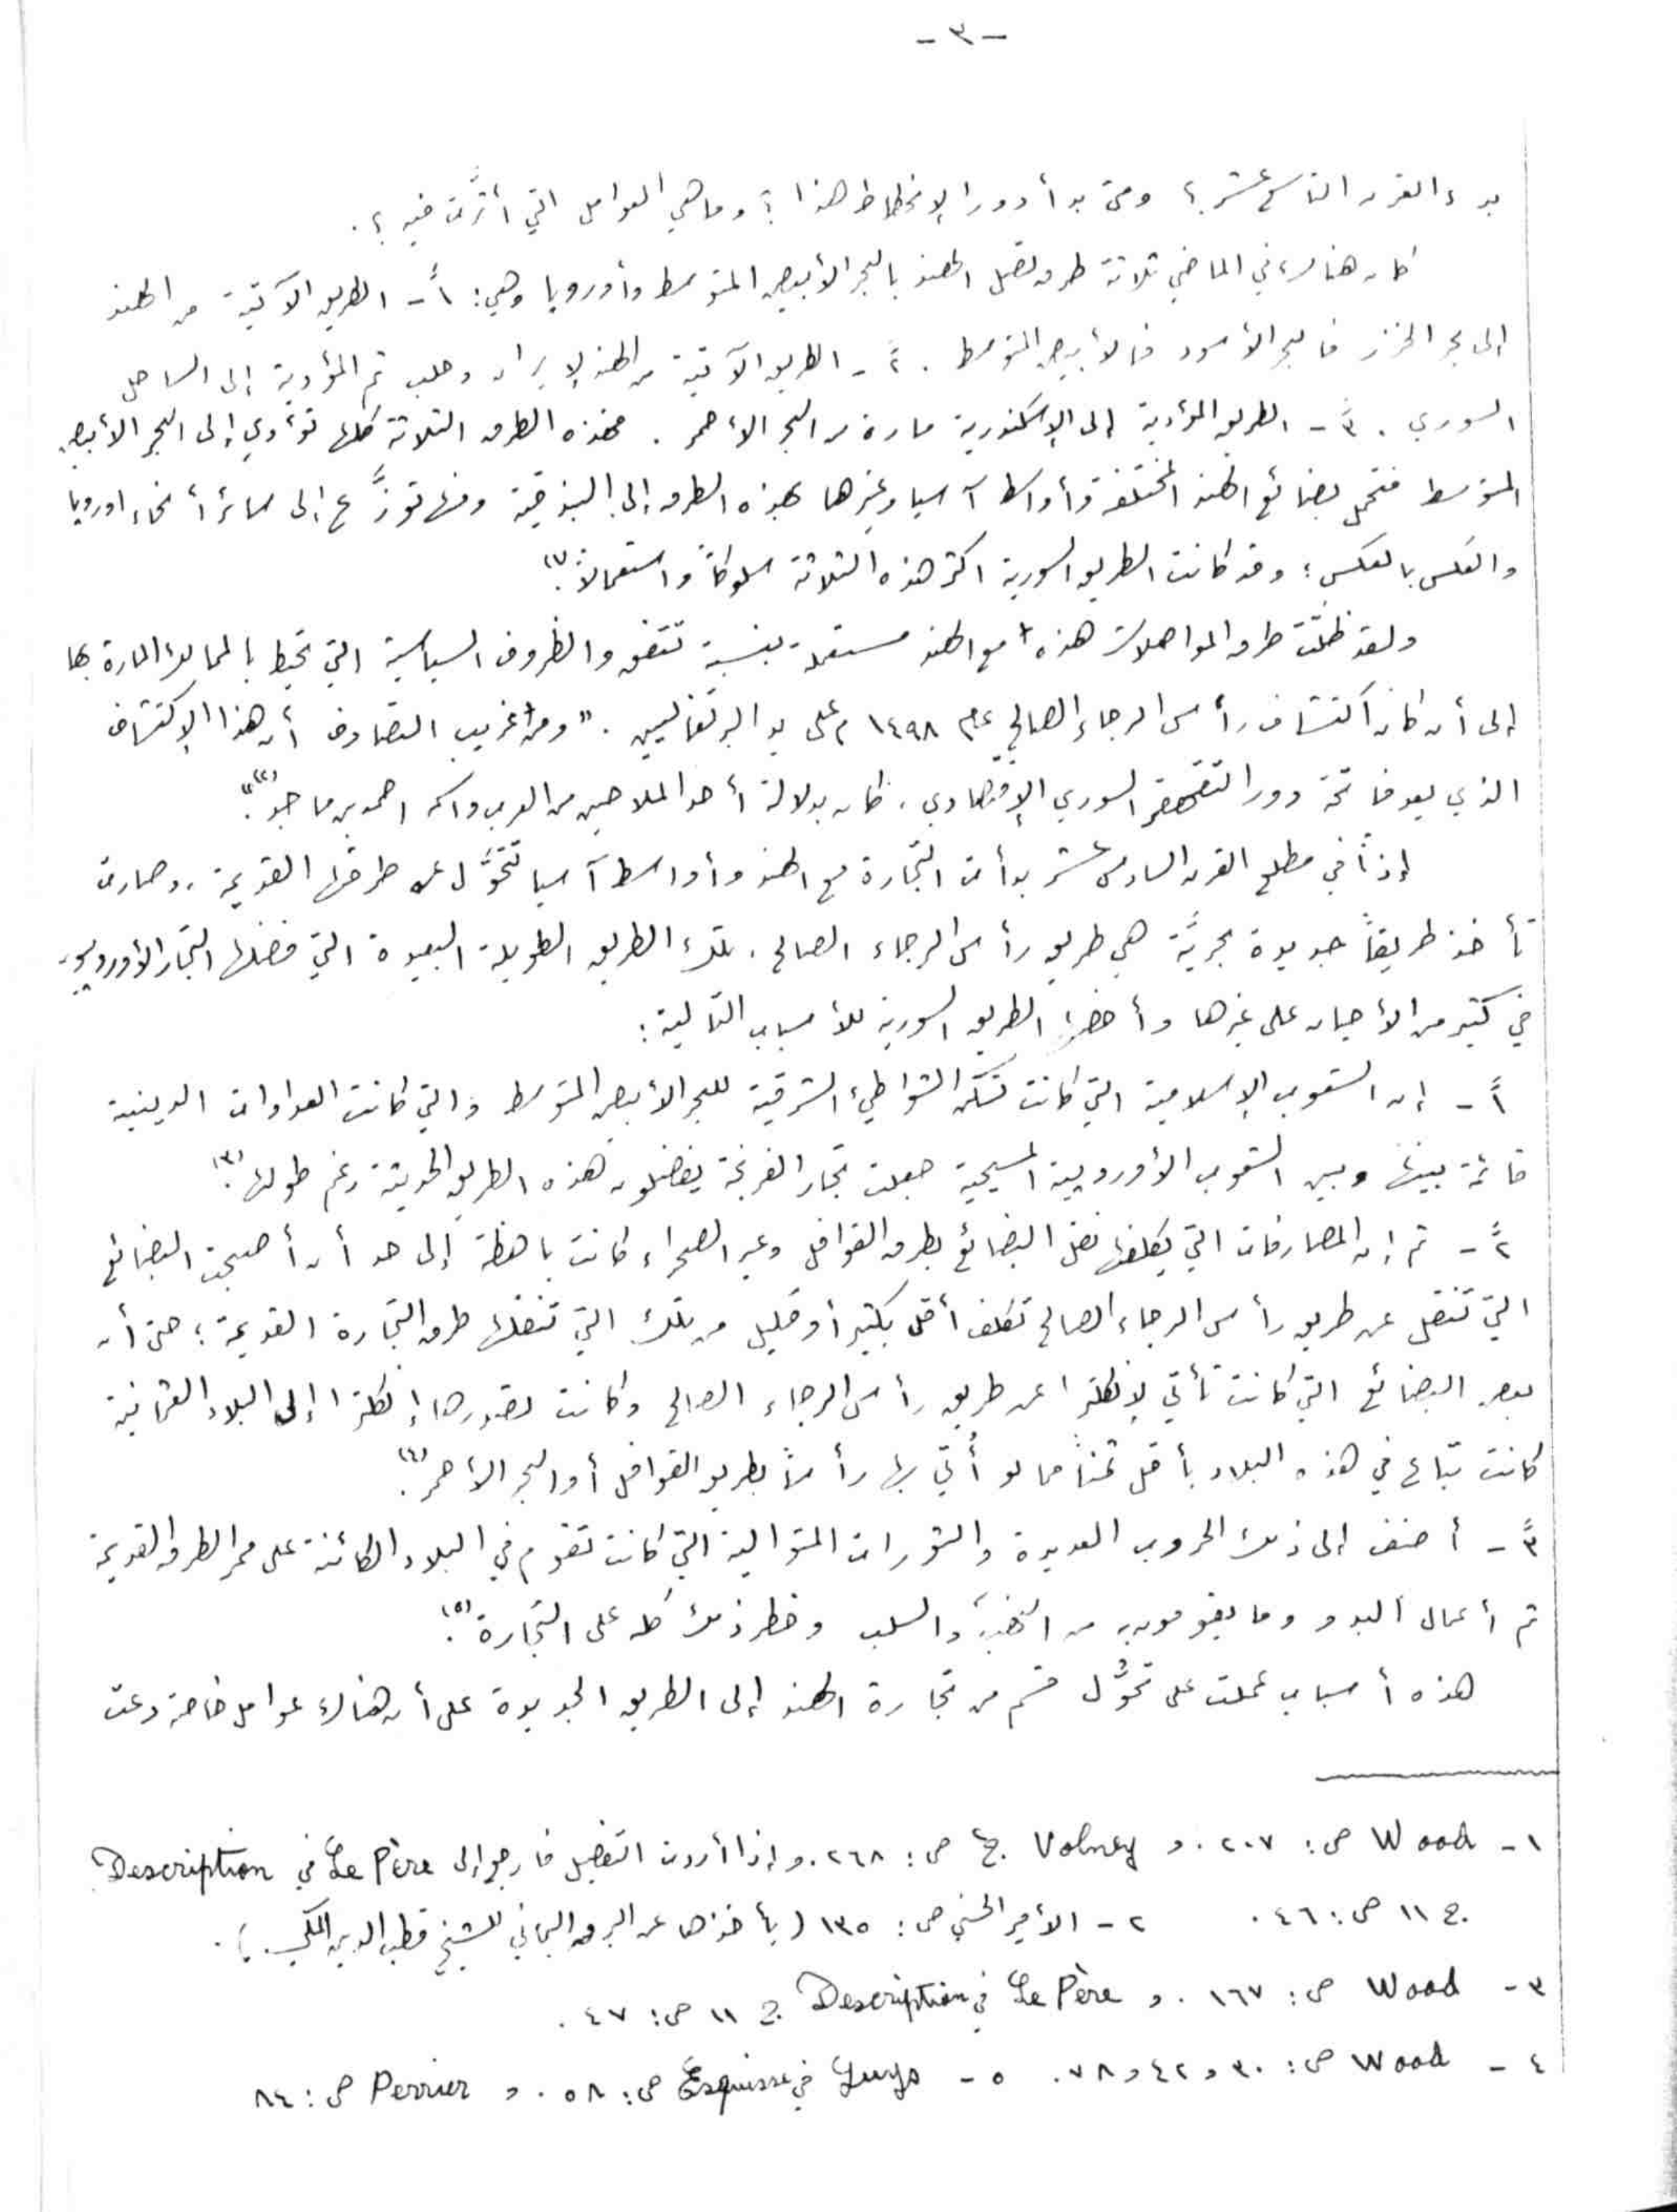 - ٣ -
بدء القرن التاسع عشر؟ ومتى بدأ دور الإنحطاط هذا؟ وما هي العوامل التي أثَّرت فيه؟.
كان هناك في الماضي ثلاثة طرق تصل الهند بالبحر الأبيض المتوسط وأوروبا وهي: ١ً- الطريق الآتية من الهند
إلى بحر الخزر فالبحر الأسود فالأبيض المتوسط. ٢ً- الطريق الآتية من الهند لإيران وحلب ثم المؤدية إلى الساحل
السوري. ٣ً- الطريق المؤدية إلى الإسكندرية مارة من البحر الأحمر. فهذه الطرق الثلاثة كلها تؤدي إلى البحر الأبيض
المتوسط فتحمل بضائع الهند المختلفة وأواسط آسيا وغيرها بهذه الطرق إلى البندقية ومنها توزَّع إلى سائر أنحاء اوروبا
والعكس بالعكس؛ وقد كانت الطريق السورية اكثر هذه الثلاثة سلوكاً واستعمالاً(١).
ولقد ظلَّت طرق المواصلات هذه مع الهند مستعملة بنسبة تتفق والظروف السياسية التي تحيط بالممالك المارة بها
إلى أن كان اكتشاف رأس الرجاء الصالح عام ١٤٩٨ م على يد البرتغاليين. "ومن غريب التصادف أن هذا الإكتشاف
الذي يعد فاتحة دور التقهقر السوري الإقتصادي، كان بدلالة أحد الملاحين من العرب واسمه احمد بن ماجد"(٢).
إذاً في مطلع القرن السادس عشر بدأت التجارة مع الهند وأواسط آسيا تتحوَّل عن طرقها القديمة، وصارت
تأخذ طريقاً جديدة بحريَّة هي طريق رأس الرجاء الصالح، تلك الطريق الطويلة البعيدة التي فضلها التجار الأوروبيون
في كثير من الأحيان على غيرها وأخصُّ الطريق السورية للأسباب التالية:
١ً- إن الشعوب الإسلامية التي كانت تسكن الشواطئ الشرقية للبحر الأبيض المتوسط والتي كانت العداوات الدينية
قائمة بينها وبين الشعوب الأوروبية المسيحية جعلت تجار الفرنجة يفضلون هذه الطريق الحديثة رغم طولها(٣).
٢ً- ثم إن المصارفات التي يكلفها نقل البضائع بطرق القوافل وعبر الصحراء كانت باهظة إلى حد أن أصبحت البضائع
التي تنقل عن طريق رأس الرجاء الصالح تكلف أقل بكثير أو قليل من تلك التي تنقلها طرق التجارة القديمة؛ حتى أن
بعض البضائع التي كانت تأتي لإنكلترا عن طريق رأس الرجاء الصالح وكانت تصدرها إنكلترا إلى البلاد العثمانية
كانت تباع في هذه البلاد بأقل ثمناً مما لو أُتي بها رأساً بطريق القوافل أو البحر الأحمر(٤).
٣ً- أضف إلى ذلك الحروب العديدة والثورات المتوالية التي كانت تقوم في البلاد الكائنة على ممر الطرق القديمة
ثم أعمال البدو وما يقومون به من النهب والسلب وخطر ذلك كله على التجارة(٥).
هذه أسباب عملت على تحوُّل قسم من تجارة الهند إلى الطريق الجديدة على أن هناك عوامل خاصة دعت
١- Wood ص: ٢٠٧. و Volney ج٢ ص: ٢٦٨. و إذا أردت التفصيل فارجع إلى Le Père في Description
ج ١١ ص: ٤٦. ٢- الأمير الحسني ص: ١٣٥ (يأخذها عن البرق اليماني للشيخ قطب الدين المكي.).
٣- Wood ص: ١٦٧. و Le Père في Description ج ١١ ص: ٤٧.
٤- Wood ص: ٣٠ و ٤٢ و ٧٨. ٥- Guys في Esquisse ص: ٥٨. و Perrier ص: ٨٤